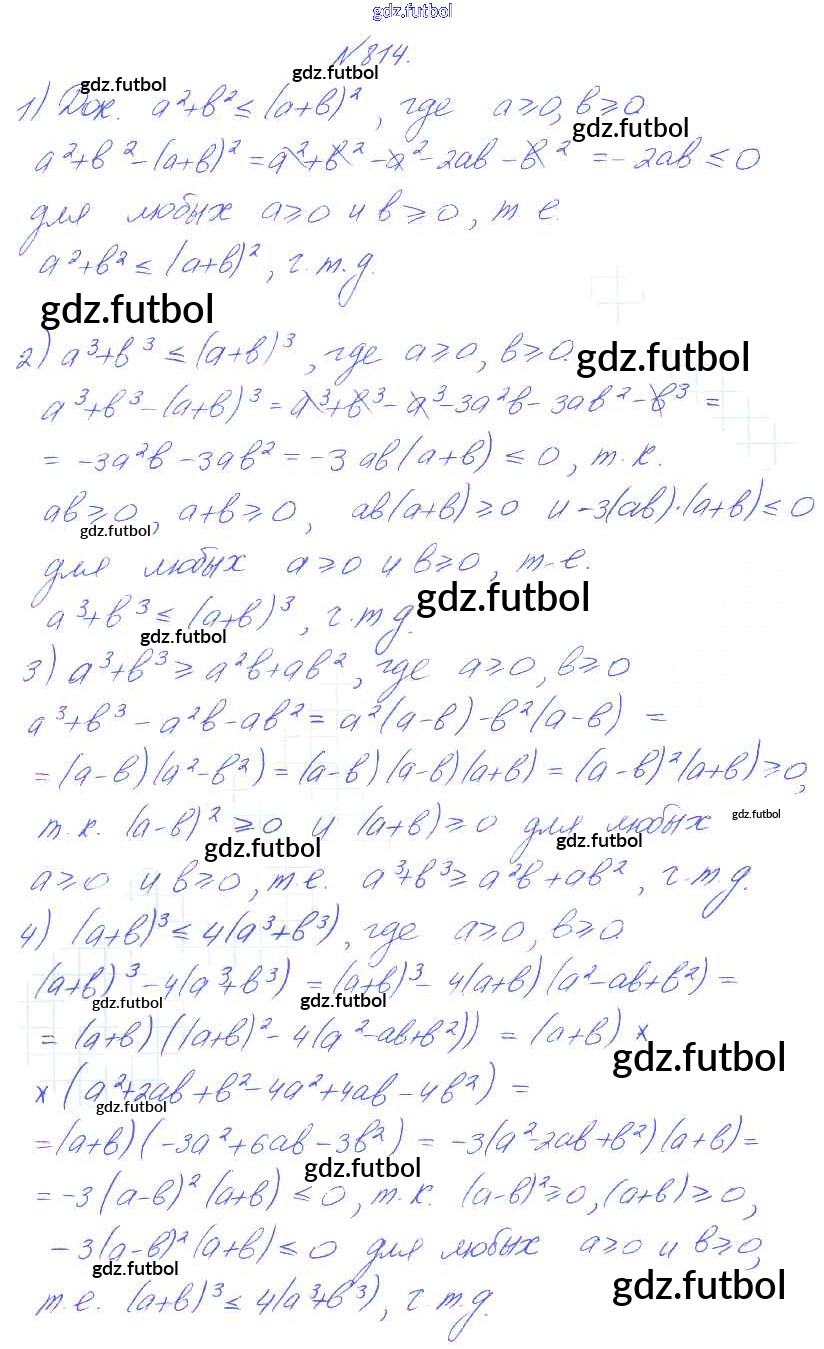 gdz.futbol
№814.
gdz.futbol gdz.futbol
1) Док. a²+b² ≤ (a+b)², где a≥0, b≥0
gdz.futbol
a²+b²-(a+b)² = a²+b²-a²-2ab-b² = -2ab ≤ 0
для любых a≥0 и b≥0, т е.
a²+b² ≤ (a+b)², ч.т.д.
gdz.futbol
2) a³+b³ ≤ (a+b)³, где a≥0, b≥0.
gdz.futbol
a³+b³-(a+b)³ = a³+b³-a³-3a²b-3ab²-b³ =
= -3a²b-3ab² = -3ab(a+b) ≤ 0, т.к.
ab≥0, a+b≥0, ab(a+b)≥0 и -3(ab)·(a+b)≤0
gdz.futbol
для любых a≥0 и b≥0, т-е.
gdz.futbol
a³+b³ ≤ (a+b)³, ч.т д.
gdz.futbol
3) a³+b³ ≥ a²b+ab², где a≥0, b≥0
a³+b³-a²b-ab² = a²(a-b)-b²(a-b) =
= (a-b)(a²-b²) = (a-b)(a-b)(a+b) = (a-b)²(a+b)≥0,
т.к. (a-b)² ≥0 и (a+b)≥0 для любых
gdz.futbol
gdz.futbol gdz.futbol
a≥0 и b≥0, т.е. a³+b³ ≥ a²b+ab², ч.т.д.
4) (a+b)³ ≤ 4(a³+b³), где a≥0, b≥0
(a+b)³-4(a³+b³) = (a+b)³-4(a+b)(a²-ab+b²) =
gdz.futbol gdz.futbol
= (a+b)((a+b)²-4(a²-ab+b²)) = (a+b) ×
gdz.futbol
× (a²+2ab+b²-4a²+4ab-4b²) =
gdz.futbol
=(a+b)(-3a²+6ab-3b²) = -3(a²-2ab+b²)(a+b)=
gdz.futbol
= -3(a-b)²(a+b) ≤ 0, т.к. (a-b)²≥0, (a+b)≥0,
-3(a-b)²(a+b)≤0 для любых a≥0 и b≥0,
gdz.futbol gdz.futbol
т.е. (a+b)³ ≤ 4(a³+b³), ч.т.д.